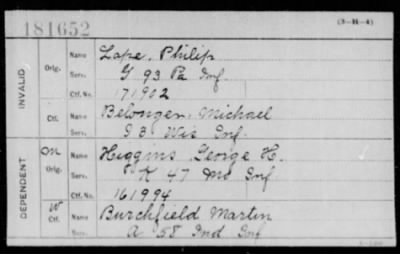 181652
(3-H-4)
INVALID
Orig.
Name Lape, Philip
Serv. G 93 Pa Inf.
Ctf. No. 171902
Ctf.
Name Belonger, Michael
Serv. G 3 Wis Inf.
DEPENDENT
On
Orig.
Name Higgins George H.
Serv. K 47 Mo Inf
Ctf. No. 161994
W
Ctf.
Name Burchfield Martin
Serv. A 58 Ind Inf